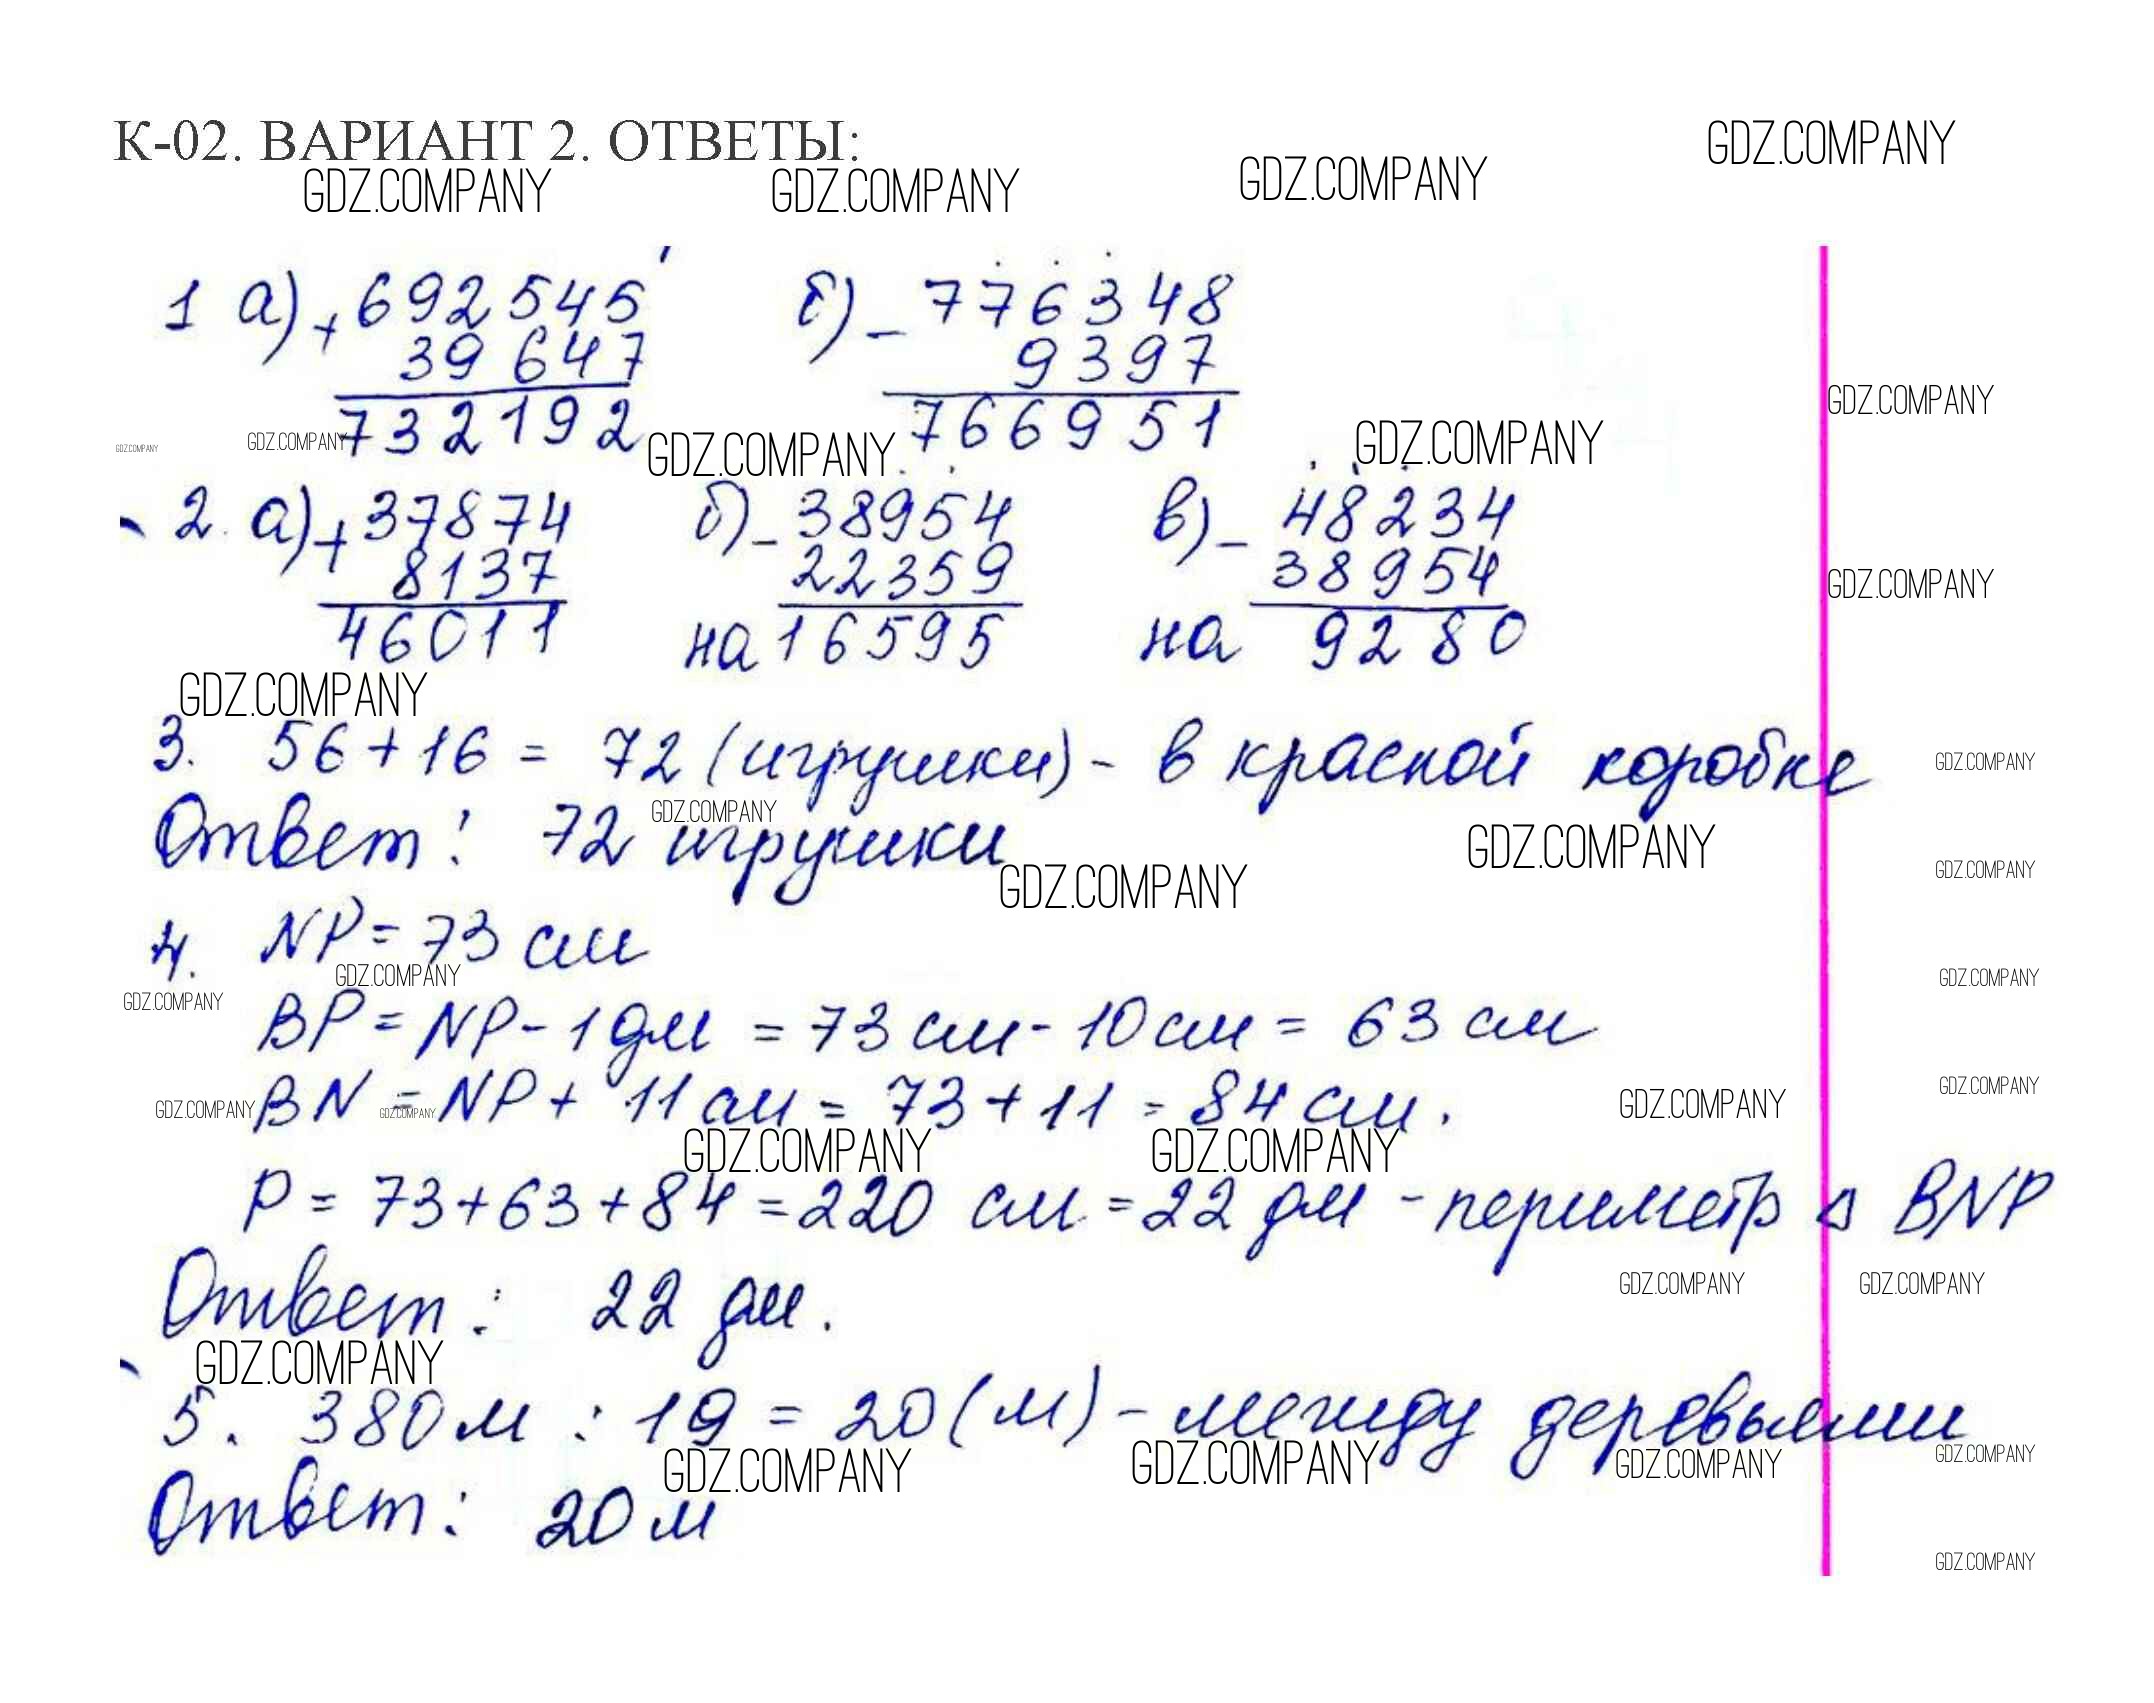 К-02. ВАРИАНТ 2. ОТВЕТЫ:
GDZ.COMPANY GDZ.COMPANY GDZ.COMPANY GDZ.COMPANY
1 а) + 692545 б) - 776348
39647 9397
732192 766951
GDZ.COMPANY
GDZ.COMPANY GDZ.COMPANY GDZ.COMPANY GDZ.COMPANY
2. а) + 37874 б) - 38954 в) - 48234
8137 22359 38954
GDZ.COMPANY
46011 на 16595 на 9280
GDZ.COMPANY
3. 56 + 16 = 72 (игрушки) - в красной коробке
GDZ.COMPANY
GDZ.COMPANY
Ответ: 72 игрушки
GDZ.COMPANY GDZ.COMPANY GDZ.COMPANY
4. NP = 73 см
GDZ.COMPANY GDZ.COMPANY GDZ.COMPANY
BP = NP - 1 дм = 73 см - 10 см = 63 см
BN = NP + 11 см = 73 + 11 = 84 см.
GDZ.COMPANY GDZ.COMPANY GDZ.COMPANY GDZ.COMPANY
GDZ.COMPANY GDZ.COMPANY
P = 73 + 63 + 84 = 220 см = 22 дм - периметр Δ BNP
Ответ: 22 дм.
GDZ.COMPANY GDZ.COMPANY
GDZ.COMPANY
5. 380 м : 19 = 20 (м) - между деревьями
GDZ.COMPANY GDZ.COMPANY GDZ.COMPANY GDZ.COMPANY
Ответ: 20 м
GDZ.COMPANY